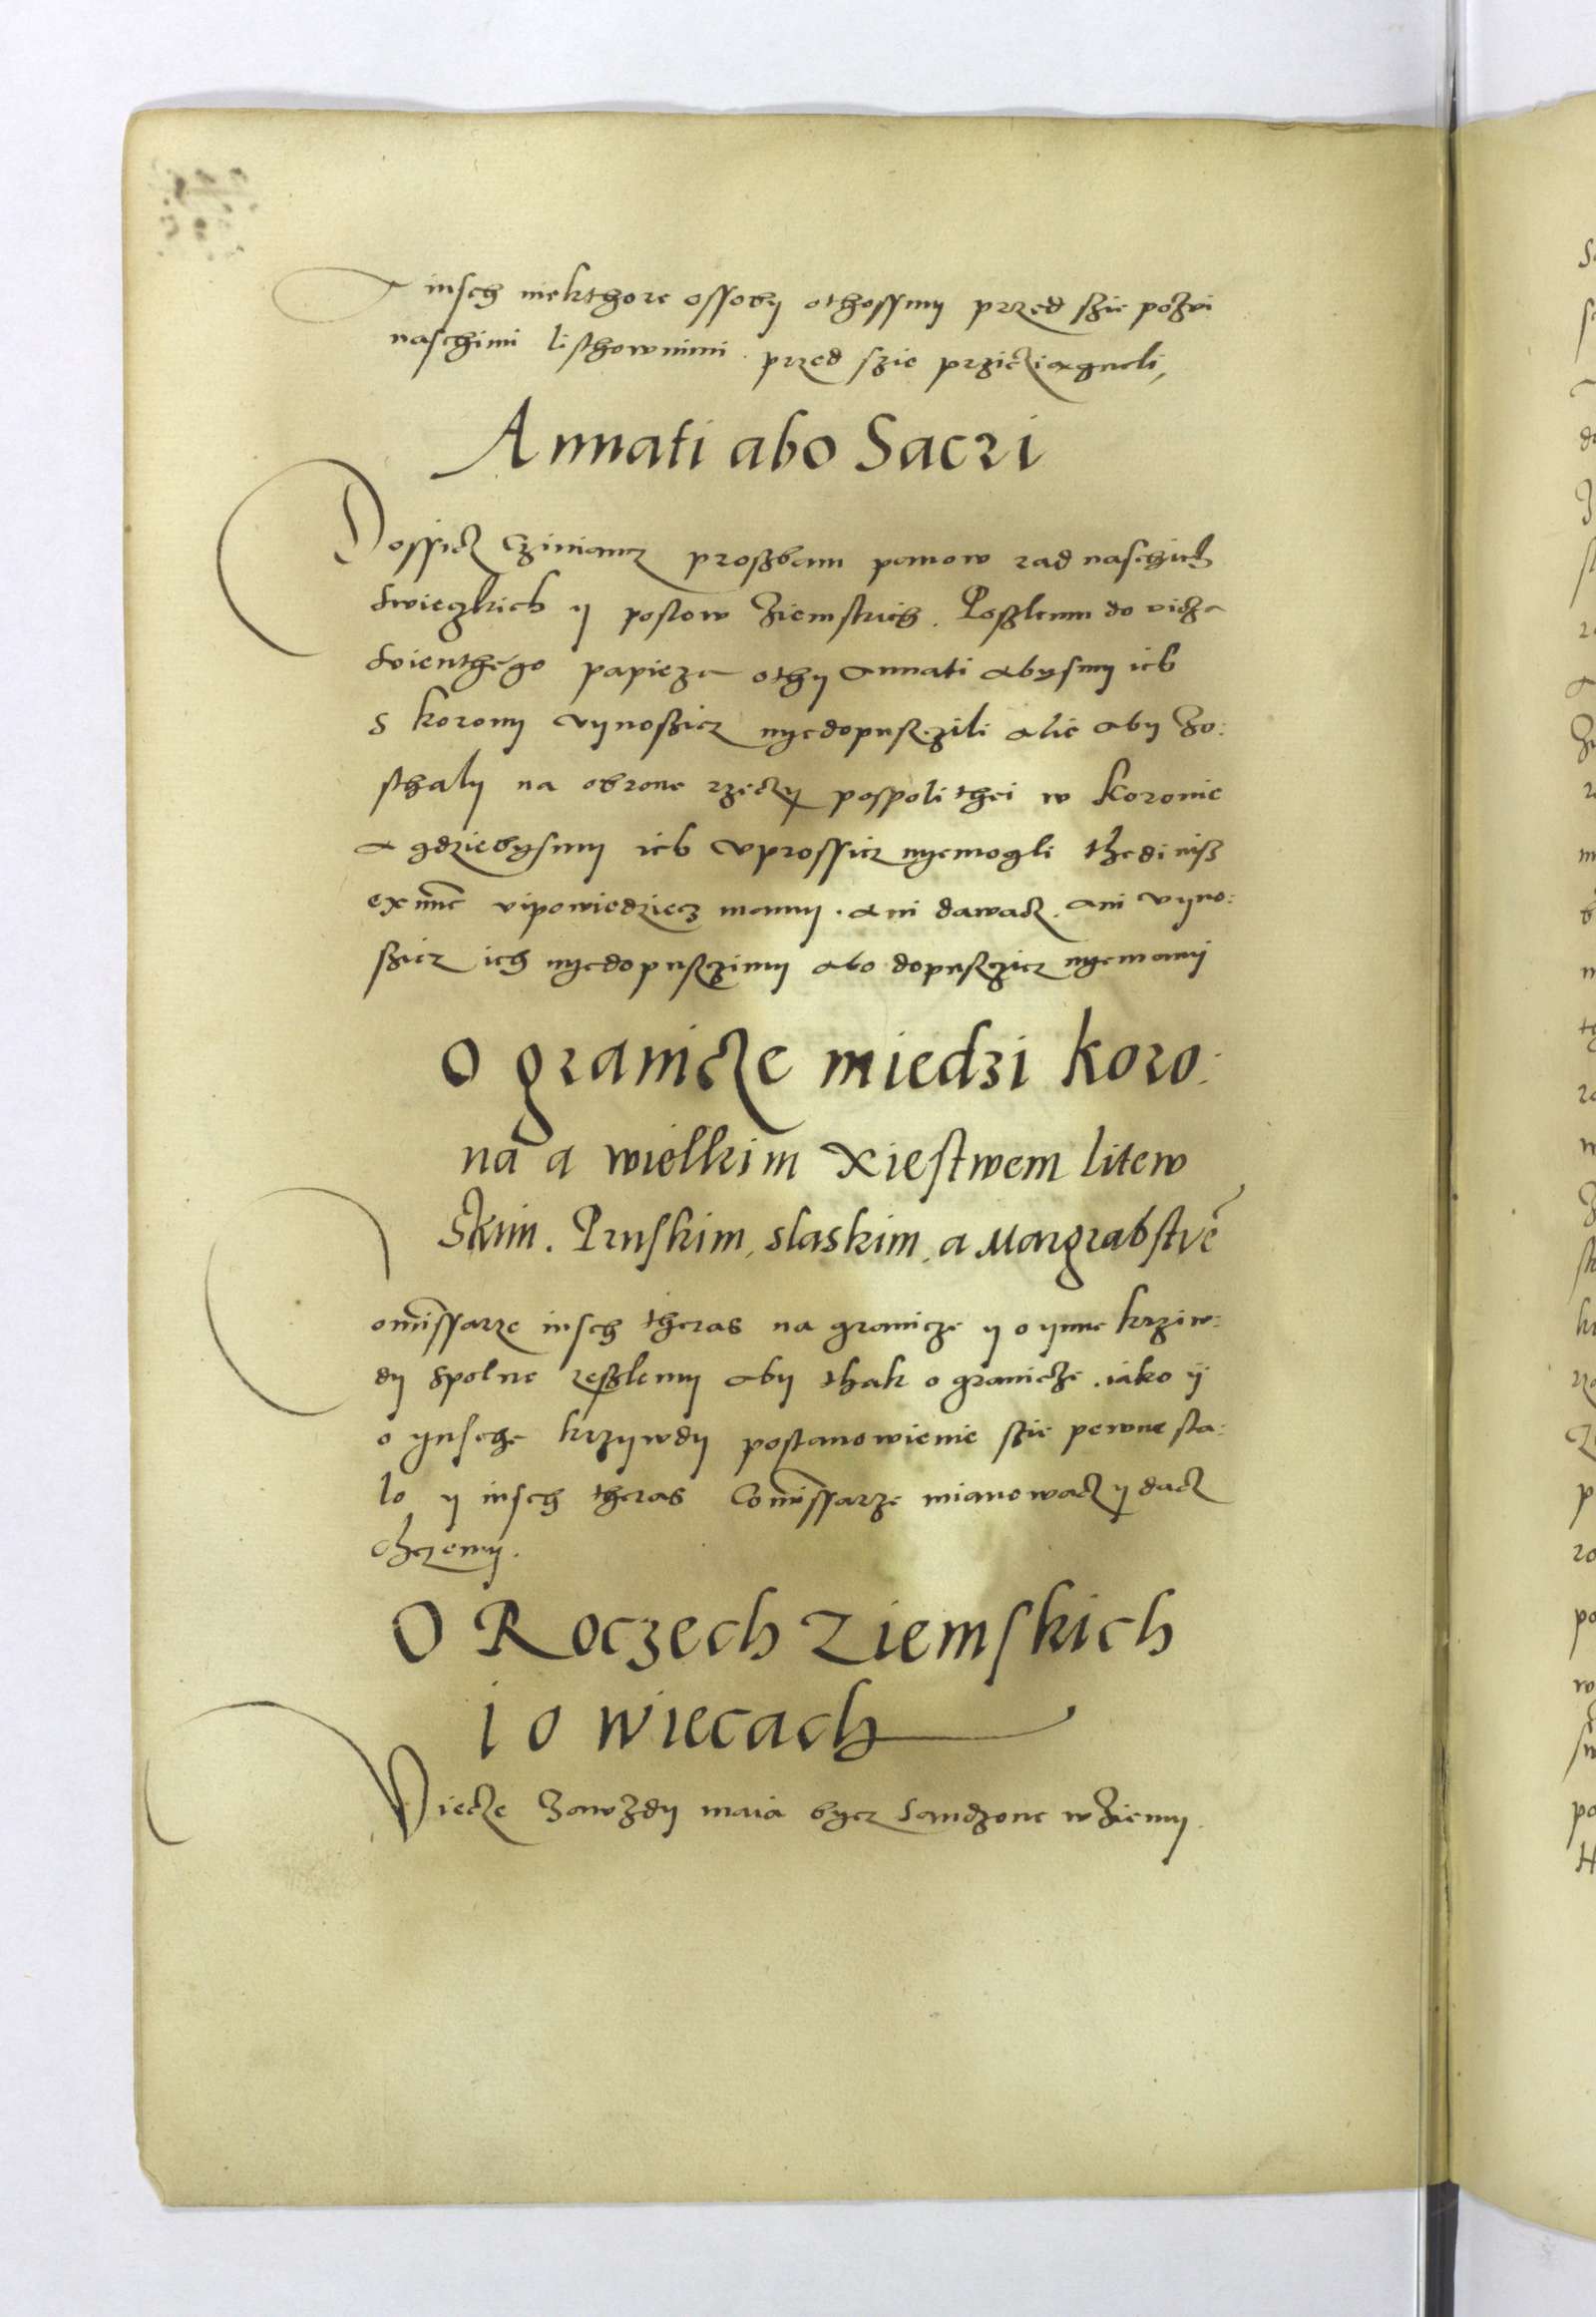 A insch niekthore ossoby othossmy przed szie pozwi
naschimi listhownimi przed szie przicziagneli,
Annati abo Sacri
Dossicz Cziniancz proszbam panow rad naschich
swieczkich y poslow Ziemskich. Poszlemy do oicza
swienthego papieza othy Annati abysmy ich
s korony vynoszicz nyedopusczili alie aby zo:
sthaly na obrone rzeczy pospolithei w Koronie
a gdziebysmy ich vprossicz nyemogli thedi nisz
ex nunc vipowiedziecz mamy. ani dawacz. ani vyno:
szicz ich nyedopusczimy abo dopusczicz nyemamy
O granicze miedzi koro:
na a wielkim Xiestwem litew
skim. Pruskim, slaskim, a Margrabstvē
omissarze insch theras na granicze y o ynne krziw:
dy spolne zeszlemy aby thak o granicze. iako y
o ynsche krzywdy postanowienie szie pewne sta:
lo y insch theras Comissarze mianowacz y dacz
chczemy.
O Roczech Ziemskich
i o wiecach
Wiecze zawzdy maia bycz sandzone w Ziemy.